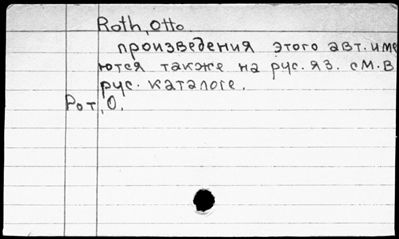 Roth, Otto
произведения этого авт. име
ются также на рус. яз. см. в
рус. каталоге.
Рот, О.